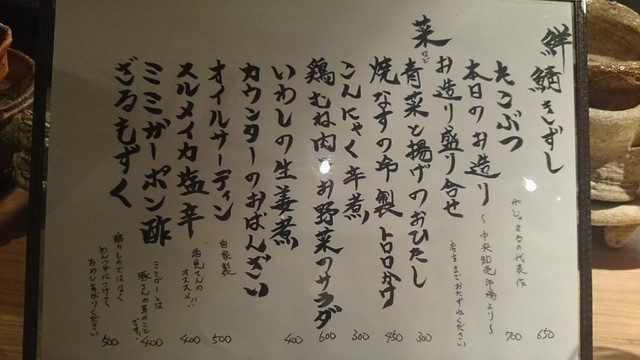 鮮鯖きずし 650
たこぶつ みしまるの代表作 700
本日のお造り 〜中央卸売市場より〜
お造り盛り合せ 店主までおたずねください
菜など
青菜と揚げのおひたし 300
焼なすの冷製トロロかけ 450
こんにゃく辛煮 300
鶏むね肉のお野菜のサラダ 600
いわしの生姜煮 400
カウンターのおばんざい
オイルサーディン 自家製 500
スルメイカ塩辛 オススメ!! 400
ミミガーポン酢 ミミガーとは豚さんの耳のことです。 400
ざるもずく 酢のものではなくめんつゆにつけておめしあがりください 500